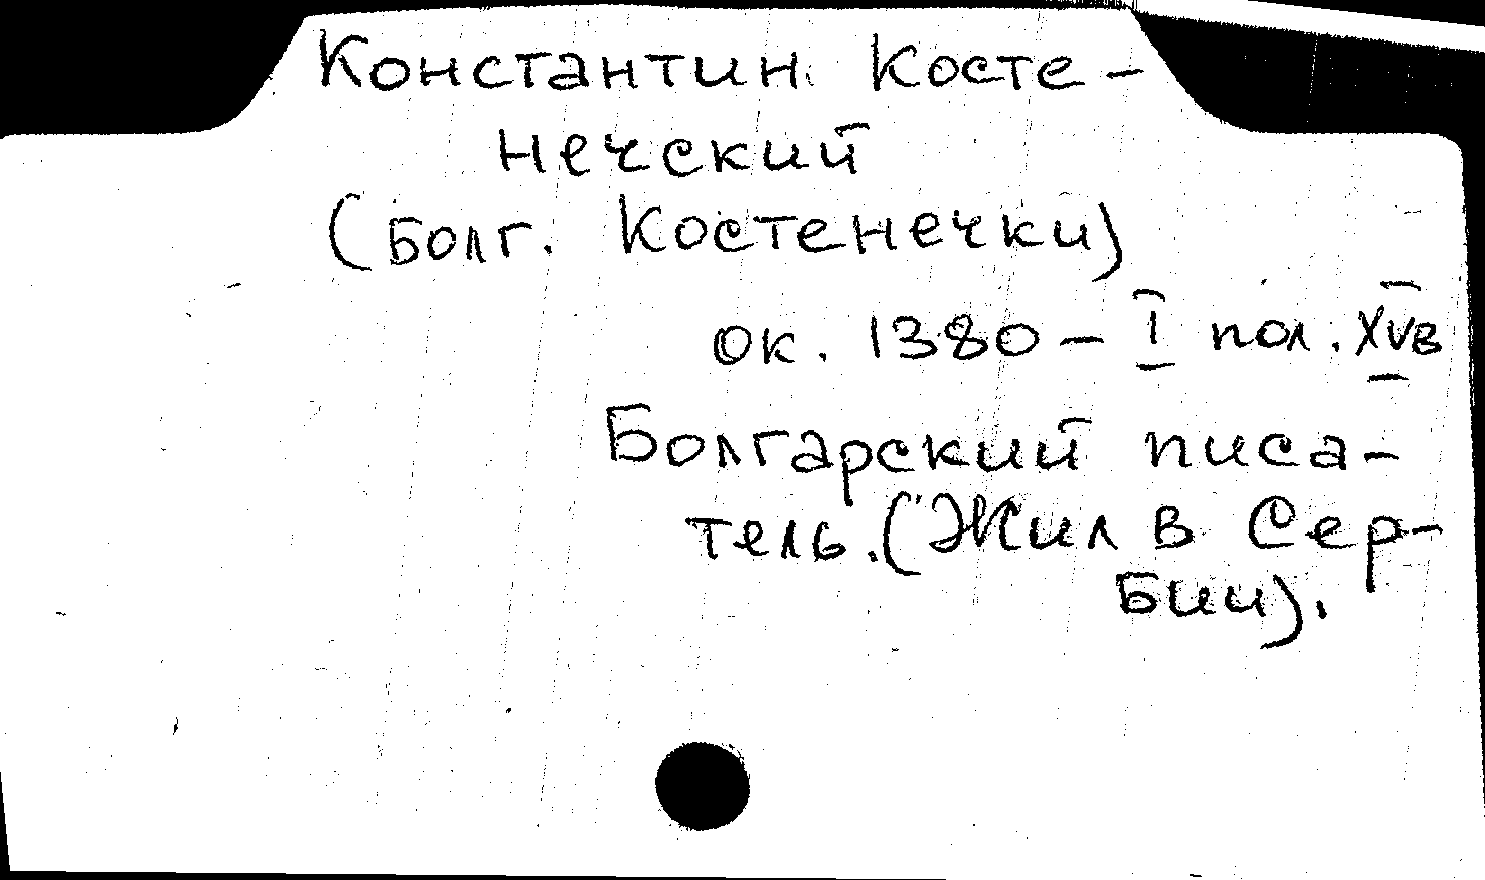 Константин Косте-
нечский
(болг. Костенечки)
ок. 1380 – I пол. XV в
Болгарский писа-
тель. (Жил в Сер-
бии).